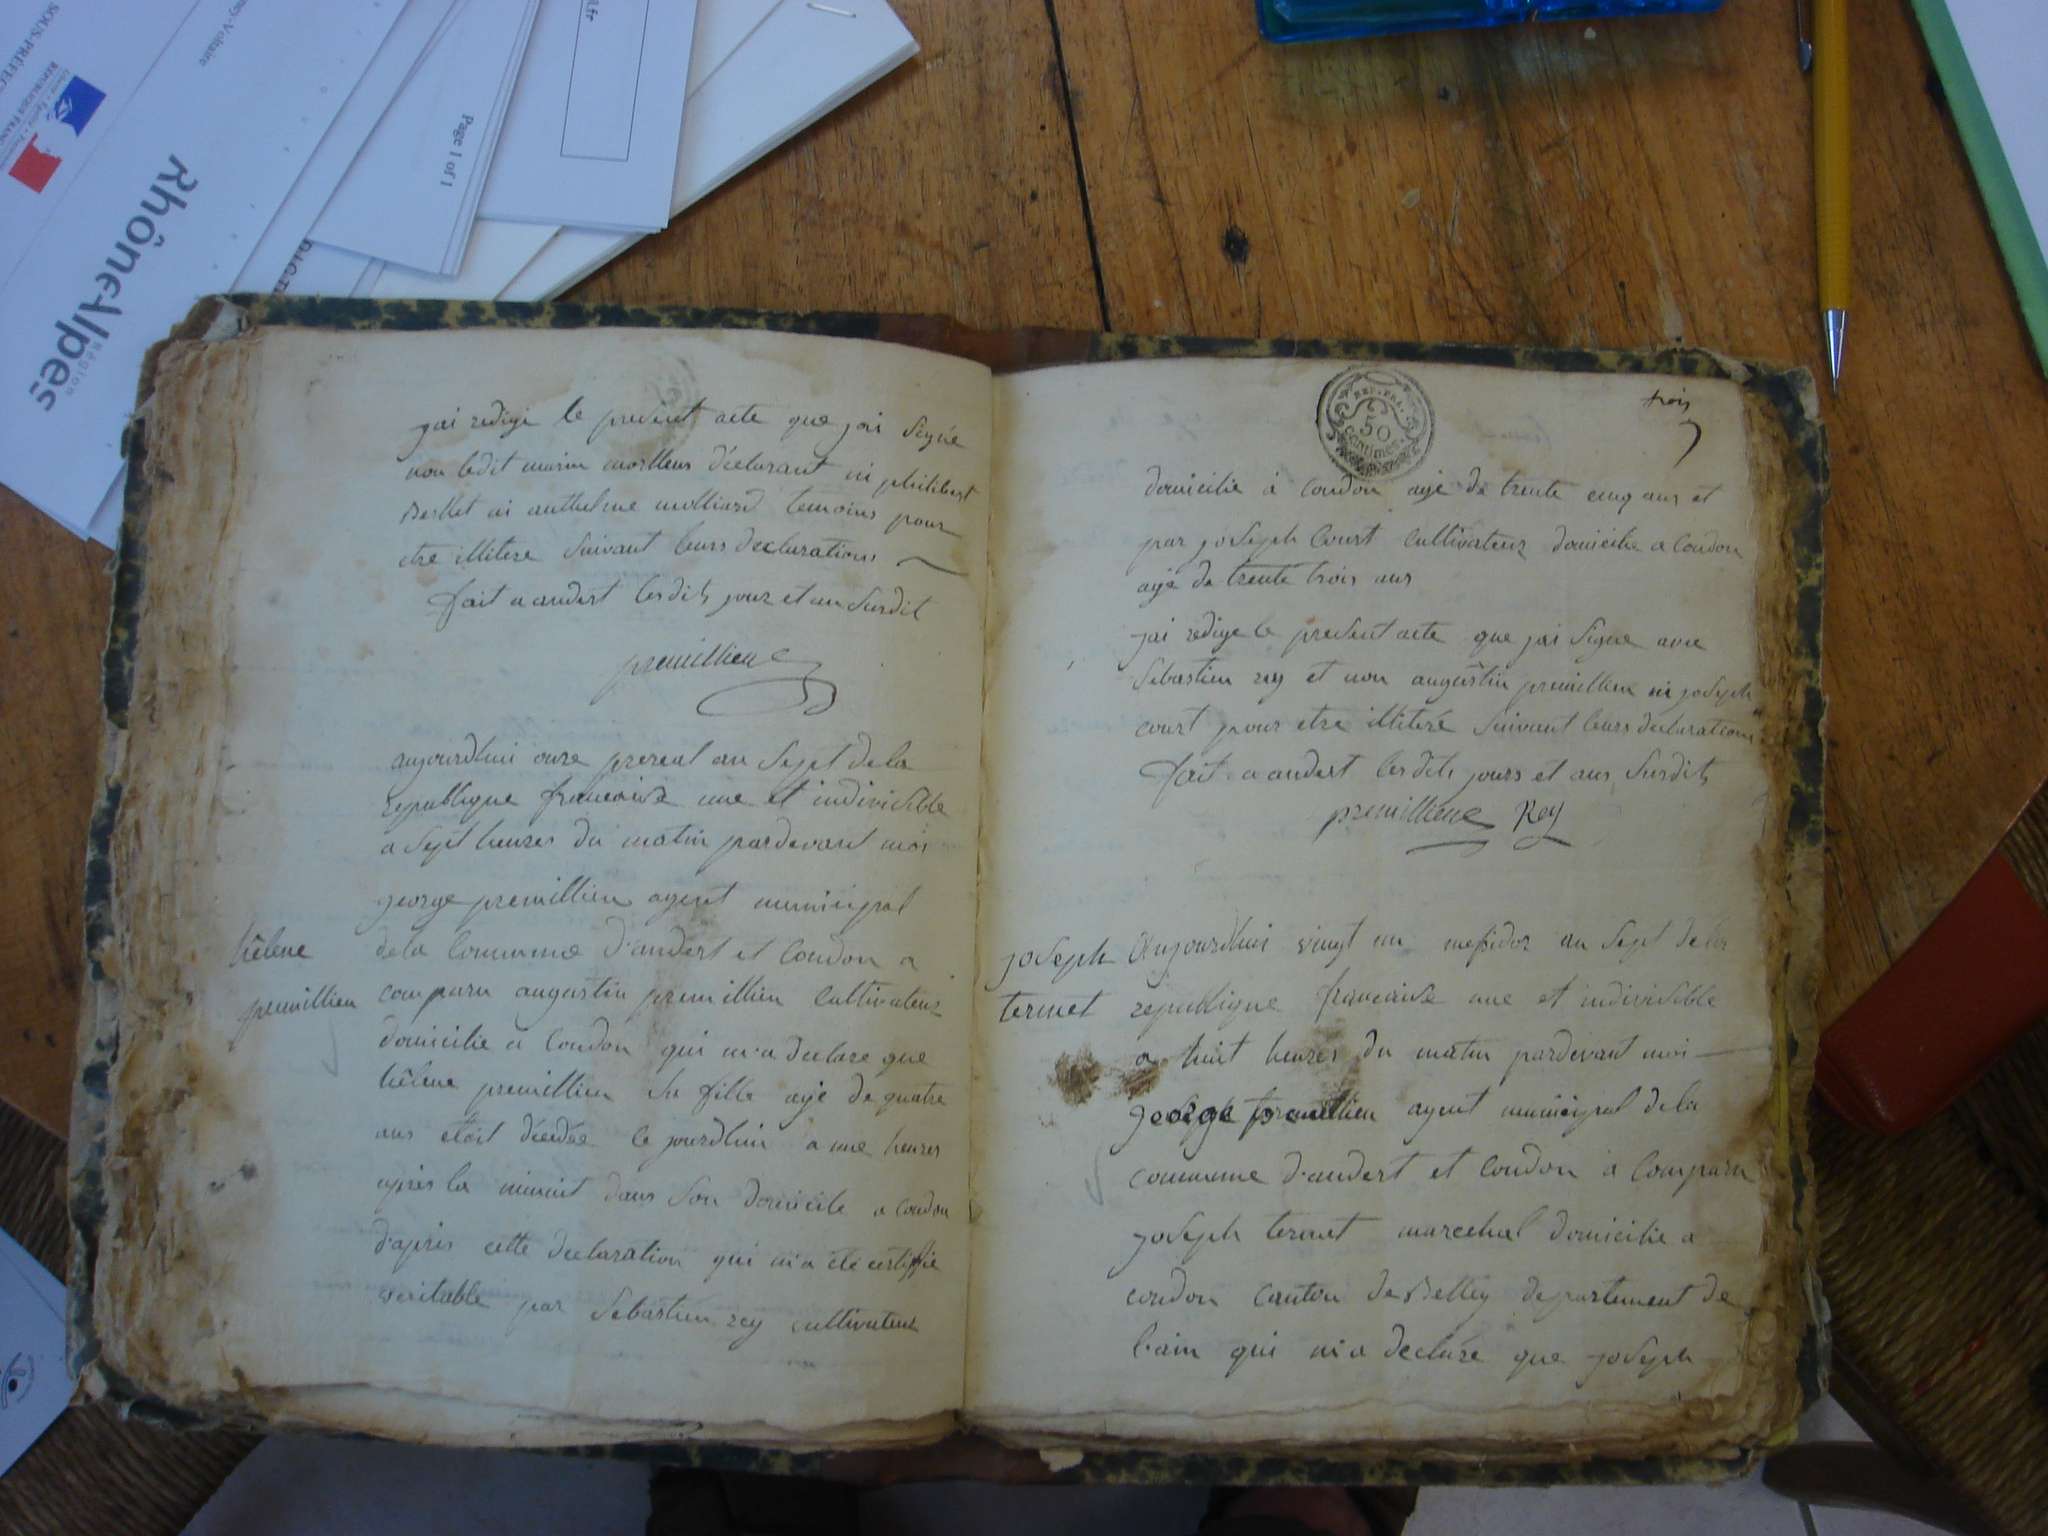 SOUS-PRÉFEC
ney-Voltaire
Rhône4lpes
Région
Page 1 of 1
l.fr
jai redigé le present acte que jai signé
non ledit marin declarant ni philibert
Berlet ni anthelme molliard temoins pour
etre illitere suivant leurs declarations
fait a andert lesdits jour et an susdit
premillieu
aujourdhui onze prereal an sept de la
republique francaise une et indivisible
a sept heures du matin pardevant moi
george premillieu agent municipal
hélene
de la commune d'andert et condon a
premillieu
comparu augustin premillieu cultivateur
domicilie a condon qui m'a declare que
hélene premillieu sa fille agé de quatre
ans etoit décédée le jourdhui a une heures
après la minuit dans son domicile a condon
d'apris cette declaration qui m'a été certiffié
veritable par sebastien rey cultivateur
REP. FRA.
50
centimes
trois
domicilie a condon agé de trente cinq ans et
par joseph court cultivateur domicilie a condon
agé de trente trois ans
jai redige le present acte que jai signe avec
sebastien rey et non augustin premillieu ni joseph
court pour etre illiteré suivant leurs declarations
fait a andert lesdits jours et ans susdits
premillieu Rey
joseph
ternet
aujourdhui vingt un mesidor an sept de la
republique francaise une et indivisible
a huit heures du matin pardevant moi
george premillieu agent municipal de la
commune d'andert et condon a comparu
joseph ternet marechal domicilie a
condon canton de Belley departement de
l'ain qui m'a declaré que joseph